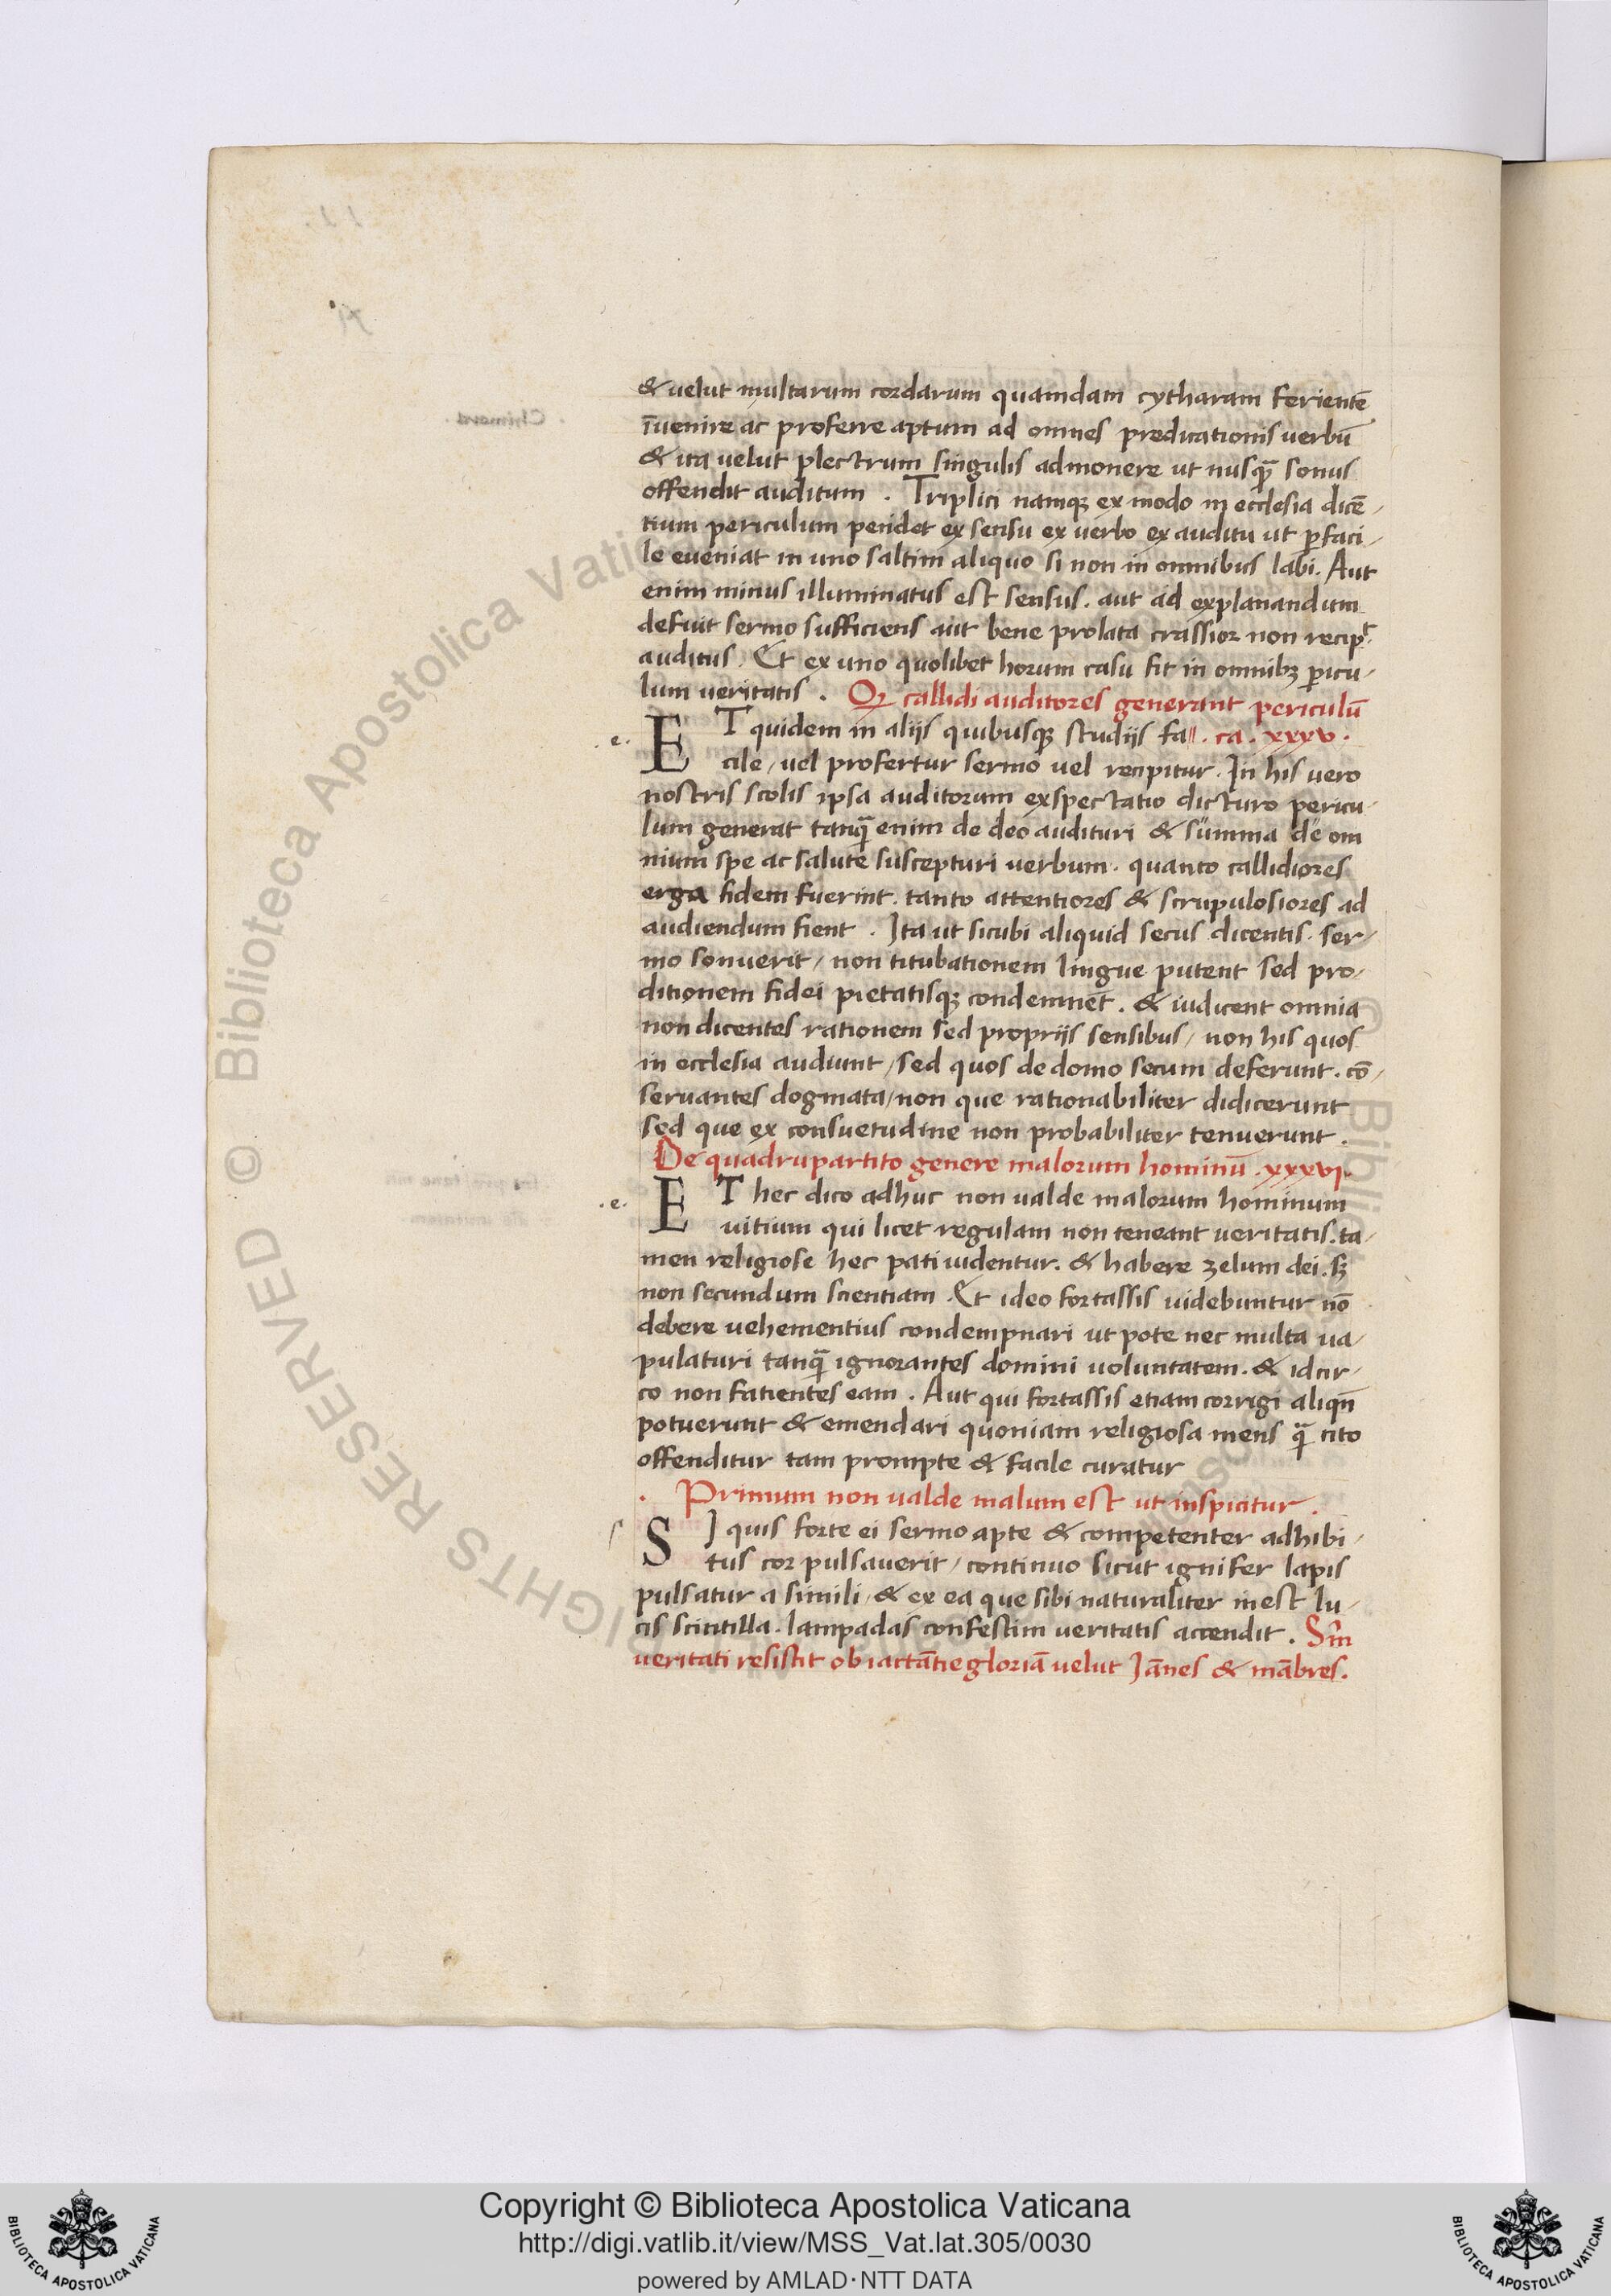 & velut multarum cordarum quamdam cytharam feriente̅
i̅venire ac proferre aptum ad omnes predicationis verbu̅
& ita velut plectrum singulis admonere ut nusqꝫ̅ sonus
offendit auditum . Triplici namqꝫ ex modo in ecclesia dice̅-
tium periculum pendet ex sensu ex verbo ex auditu ut ꝑfaci-
le eveniat in uno saltim aliquo si non in omnibus labi. Aut
enim minus illuminatus est sensus. aut ad explanandum
defuit sermo sufficiens aut bene prolata crassior non recipt̕
auditus. Et ex uno quolibet horum casu fit in omnibꝫ ꝑicu-
lum veritatis . Qꝫ callidi auditores generant periculu̅
.e. ET quidem in alijs quibusqꝫ studijs fa . ca . xxxv.
cile, vel profertur sermo vel recipitur. In his vero
nostris scolis ipsa auditorum exspectatio dicturo pericu-
lum generat tanqꝫ̅ enim de deo audituri & summa de om
nium spe ac salute suscepturi verbum. quanto callidiores
erga fidem fuerint. tanto attentiores & scrupulosiores ad
audiendum fient . Ita ut sicubi aliquid secus dicentis ser-
mo sonuerit, non titubationem lingue putent sed pro-
ditionem fidei pietatisqꝫ condemne̅t. & iudicent omnia
non dicentes rationem sed proprijs sensibus, non his quos
in ecclesia audiunt, sed quos de domo secum deferunt. co̅-
servantes dogmata, non que rationabiliter didicerunt
sed que ex consuetudine non probabiliter tenuerunt.
De quadrupartito genere malorum hominu̅ .xxxvi.
.e. ET hec dico adhuc non valde malorum hominum
vitium qui licet regulam non teneant veritatis. ta-
men religiose hec pati videntur. & habere zelum dei. sꝫ
non secundum scientiam. Et ideo fortassis videbuntur no̅
debere vehementius condempnari ut pote nec multa va-
pulaturi tanqꝫ̅ ignorantes domini voluntatem. & idcir-
co non facientes eam . Aut qui fortassis etiam corrigi aliqn̅
potuerunt & emendari quoniam religiosa mens qꝫ̅ cito
offenditur tam prompte & facile curatur
. Primum non valde malum est ut inspicitur .
s SI quis forte ei sermo apte & competenter adhibi-
tus cor pulsaverit, continuo sicut ignifer lapis
pulsatur a simili, & ex ea que sibi naturaliter inest lu-
cis scintilla. lampadas confestim veritatis accendit. Sm̅
veritati resistit ob iacta̅tie gloria̅ velut Ja̅nes & ma̅bres.
© Biblioteca Apostolica Vaticana
RIGHTS RESERVED
Copyright © Biblioteca Apostolica Vaticana
http://digi.vatlib.it/view/MSS_Vat.lat.305/0030
powered by AMLAD·NTT DATA
BIBLIOTECA APOSTOLICA VATICANA
BIBLIOTECA APOSTOLICA VATICANA